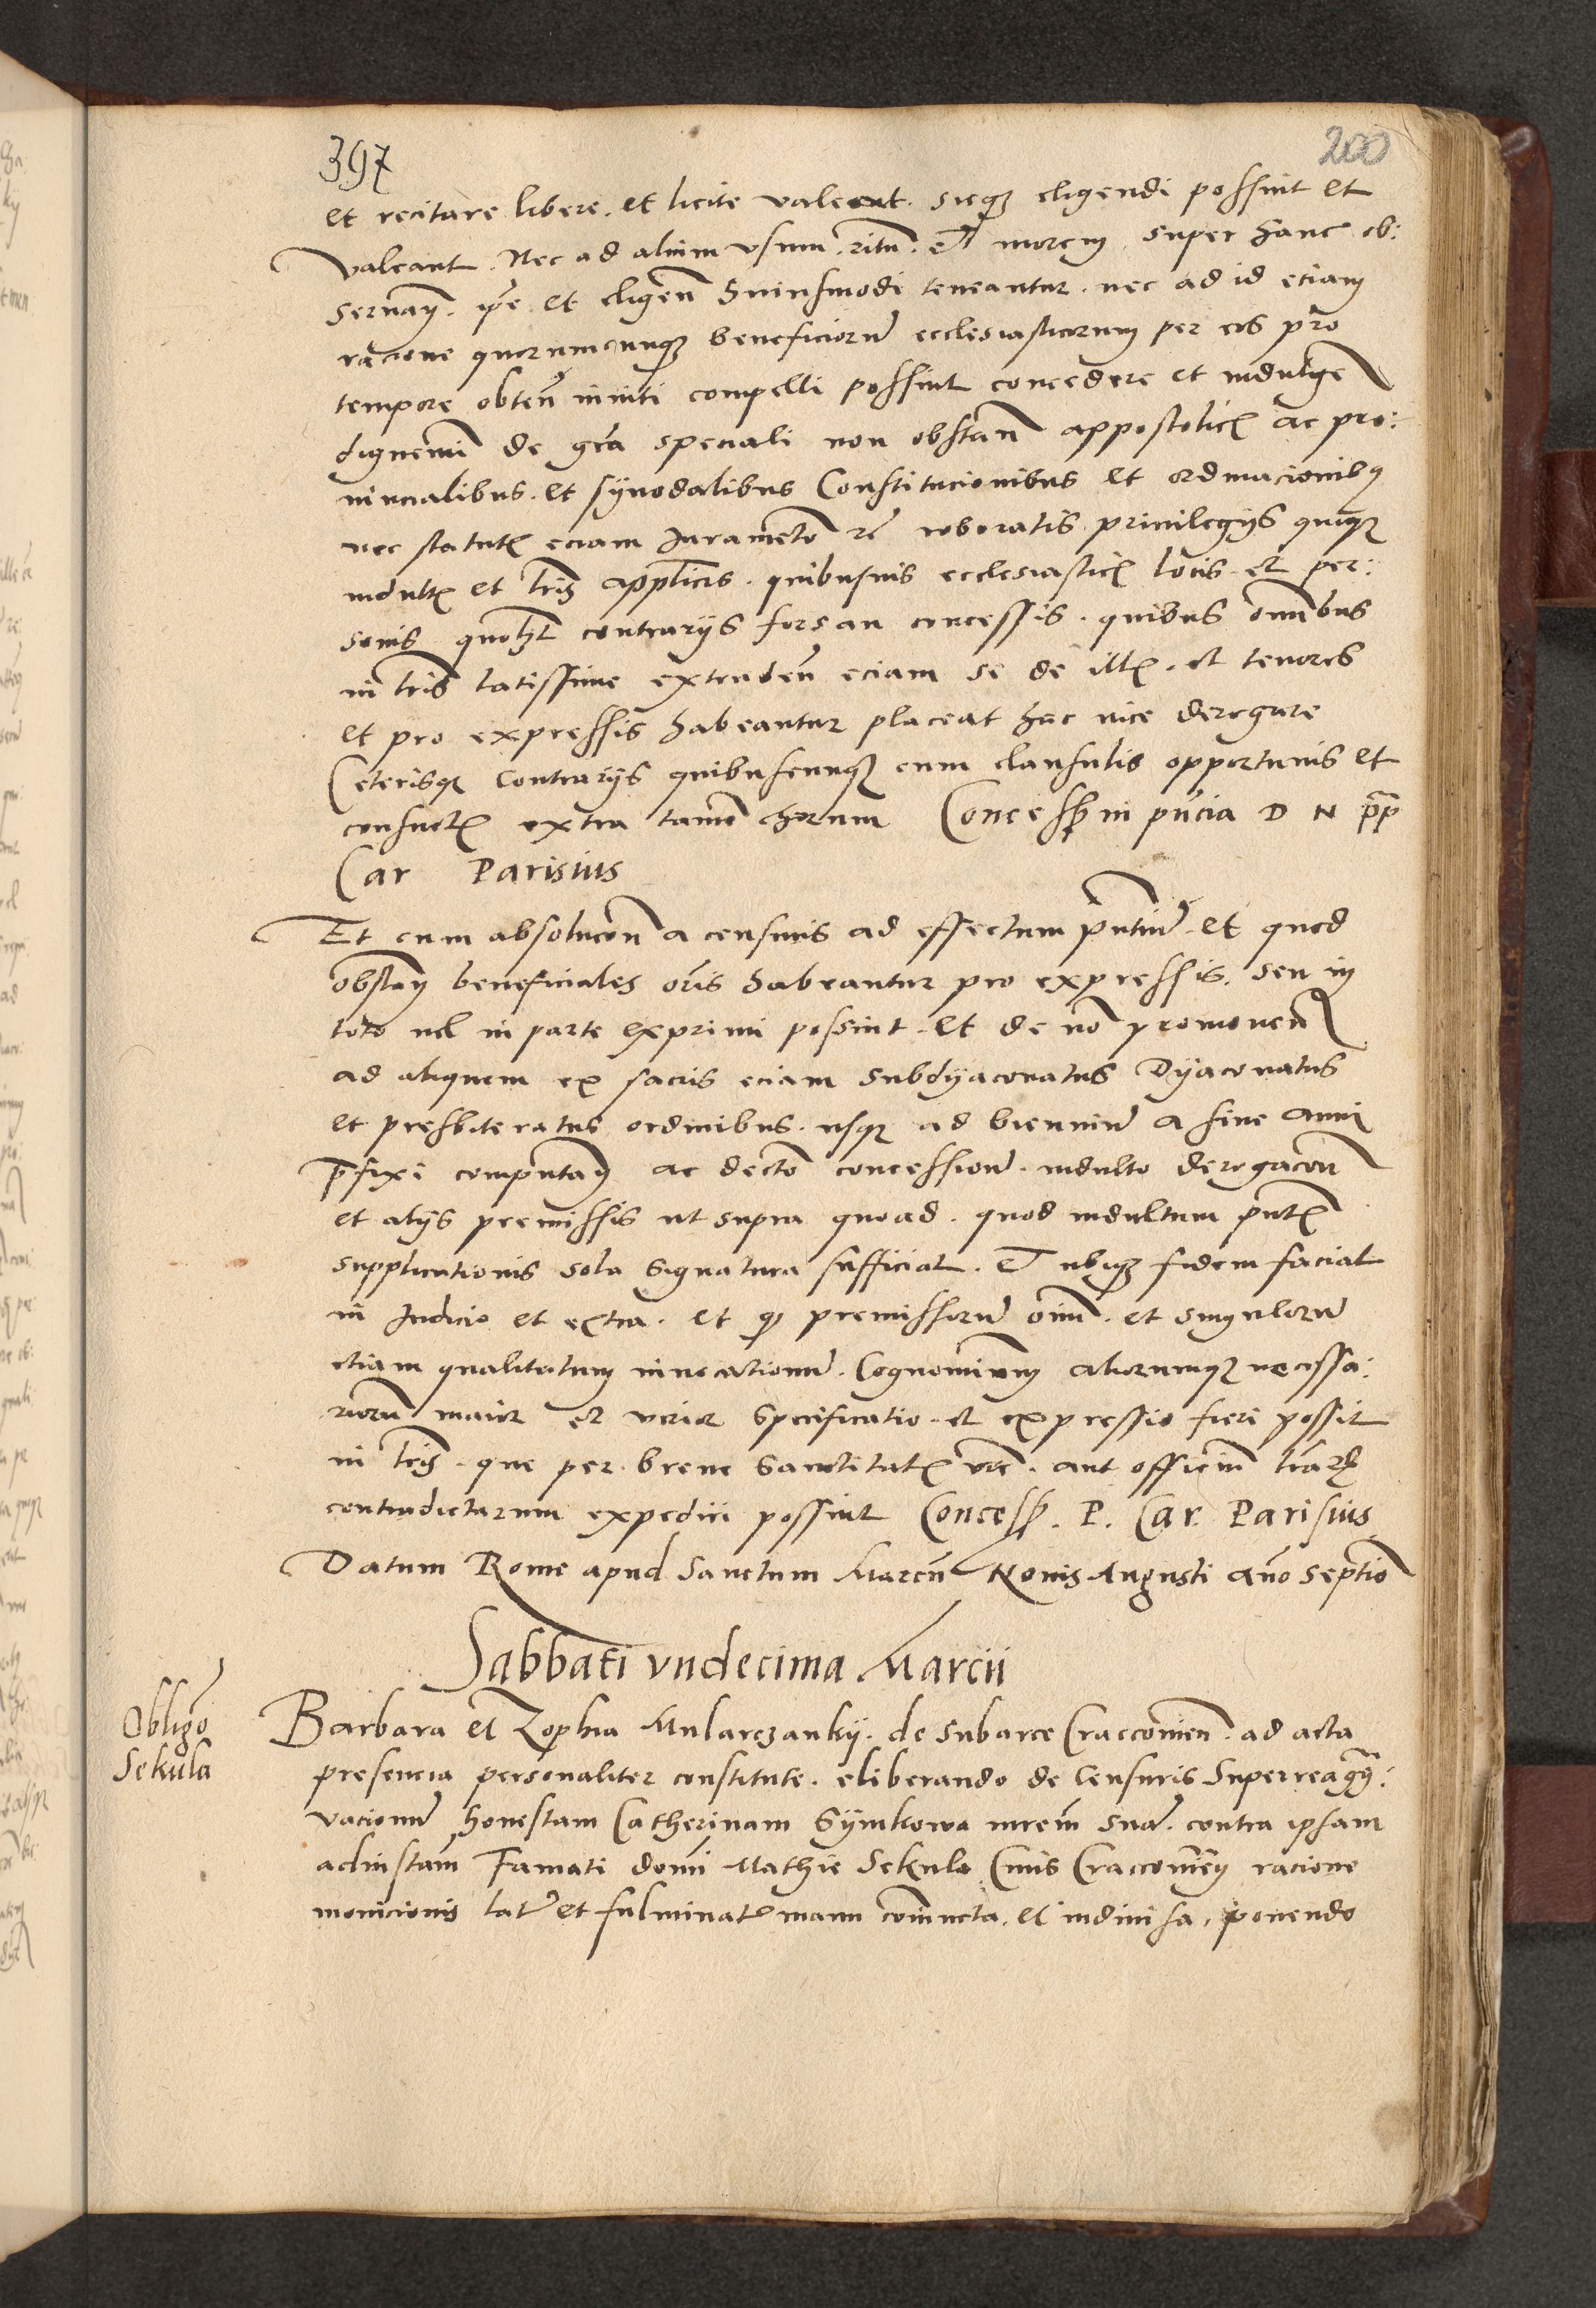 397
200
et recitare libere. et licite valeant. sicq3 eligendi possint et
valeant. Nec ad alium vsum. ritu. et morem. super hanc ob:
seruan. et eligen huiusmodi teneantur. nec ad id eciam
racione quorumcunq3 beneficioru ecclesiasticorum per eos pro
tempore obten inuiti compelli possint concedere et indulge
dignemi de gra speciali non obstan appostolicis ac pro:
uincialibus. et synodalibus Constitucionibus et ordinacionibus
nec statutis eciam Juramento roboratis priuilegijs quoq3
indultis et lris applicis. quibusuis ecclesiasticis locis et per:
sonis quoht contrarijs forsan concessis. quibus omibus
in lris latissime extenden eciam se de illis. et tenores
et pro expressis habeantur placeat hac vice derogare
Ceterisq3 contrarijs quibuscunq3 cum clausulis opportunis et
consuetis extra tamen chorum Concessum in pncia D N pp
Car Parisius
Et cum absolucon a censuris ad effectum pntiu et quod
obstan beneficiales ois habeantur pro expressis. seu in
toto uel in parte exprimi possint. et de no promouen
ad aliquem ex sacris eciam subdyaconatus Dyaconatus
et presbiteratus ordinibus. usq3 ad bienniu a fine anni
prefixi computan ac decto concessione. indulto derogacon
et alijs premissis ut supra quoad. quod indultum pntis
supplicationis sola signatura sufficiat. et ubiq3 fidem faciat
in Judicio et extra. et q premissoru oim. et singuloru
etiam qualitatum inuocationu. Cognominum aliorumq3 necessa:
rioru maior et verior specificatio. et expressio fieri possit
in lris. que per breue Sanctitatis vre. aut officium lrar
contradictarum expediri possint Concessum. P. Car. Parisius
Datum Rome apud Sanctum Marcu Nonis Augusti Ano septimo
Sabbati vndecima Marcii
Obligo
Sekula
Barbara et Zophia Mularczanky. de subarce Cracouien. ad acta
presencia personaliter constitute. eliberando de Censuris Superreagg:
vacionu honestam Catherinam Symkowa mrem sua. contra ipsam
ad instam Famati domi Mathie Sekula Ciuis Cracouien racione
monicionis lat et fulminat manu coniuncta. et indiuisa, ponendo